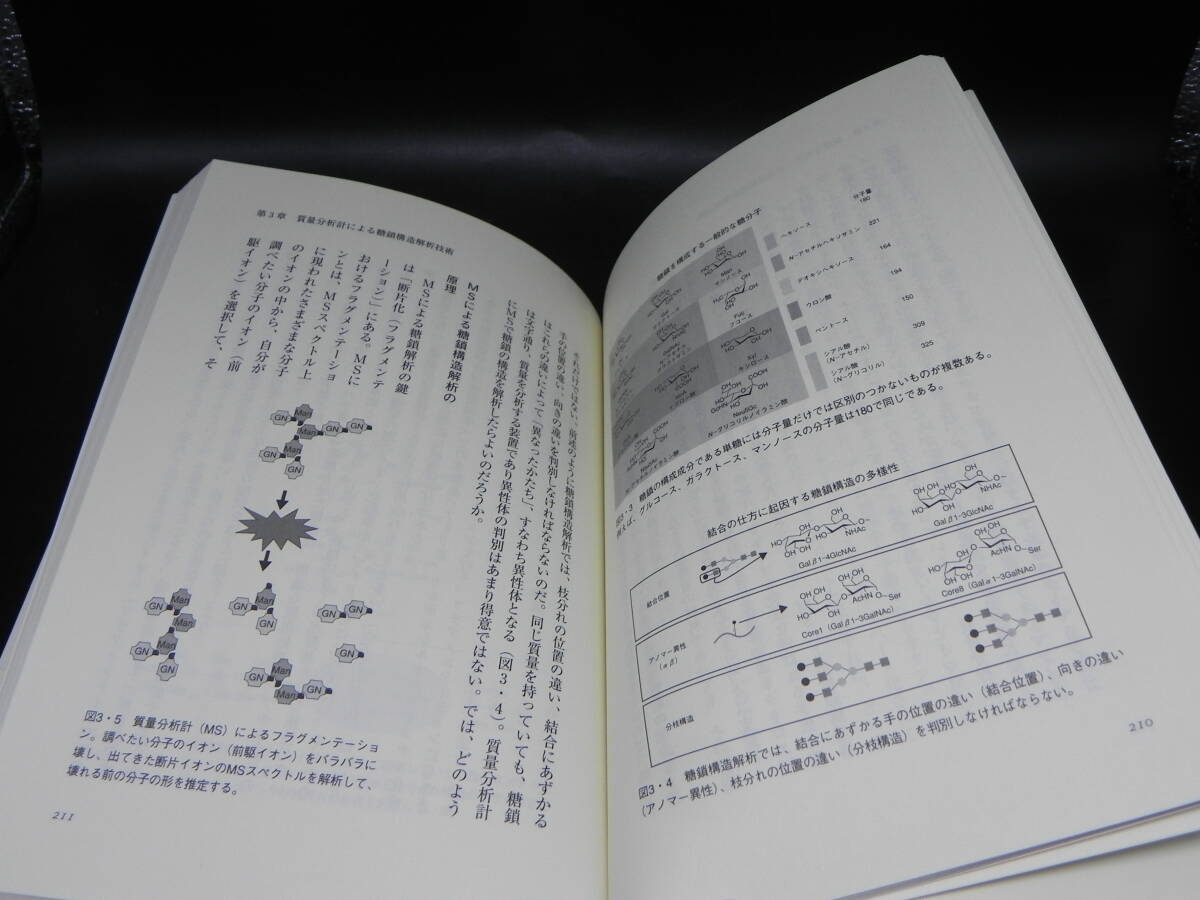 糖鎖を構成する一般的な糖分子
分子量
ヘキソース 180
N-アセチルヘキソサミン 221
デオキシヘキソース 164
ウロン酸 194
ペントース 150
シアル酸
(N-アセチル) 309
シアル酸
(N-グリコリル) 325
マンノース
Fuc
フコース
Xyl
キシロース
Neu5Gc
N-グリコリルノイラミン酸
図3・3 糖鎖の構成成分である単糖には分子量だけでは区別のつかないものが複数ある。
例えば、グルコース、ガラクトース、マンノースの分子量は180で同じである。
結合の仕方に起因する糖鎖構造の多様性
結合位置
Galβ1-4GlcNAc
Galβ1-3GlcNAc
アノマー異性
(αβ)
Core1 (Galβ1-3GalNAc)
Core8 (Galα1-3GalNAc)
分枝構造
図3・4 糖鎖構造解析では、結合にあずかる手の位置の違い（結合位置）、向きの違い
（アノマー異性）、枝分れの位置の違い（分枝構造）を判別しなければならない。
210
第3章 質量分析計による糖鎖構造解析技術
それだけではない、前述のように糖鎖構造解析では、枝分れの位置の違い、結合にあずかる
手の位置の違い、向きの違いを判別しなければならないのだ。同じ質量を持っていても、糖鎖
はこれらの違いによって「異なったかたち」、すなわち異性体となる（図3・4）。質量分析計
は文字通り、質量を分析する装置であり異性体の判別はあまり得意ではない。では、どのよう
にMSで糖鎖の構造を解析したらよいのだろうか。
MSによる糖鎖構造解析の
原理
MSによる糖鎖解析の鍵
は「断片化（フラグメンテ
ーション）」にある。MSに
おけるフラグメンテーショ
ンとは、MSスペクトル上
に現われたさまざまな分子
のイオンの中から、自分が
調べたい分子のイオン（前
駆イオン）を選択して、そ
GN
Man
GN
GN
Man
Man
GN
GN
GN
Man
Man
Man
GN
GN
GN
Man
GN
GN
GN
GN
Man
GN
Man
GN
図3・5 質量分析計（MS）によるフラグメンテーショ
ン。調べたい分子のイオン（前駆イオン）をバラバラに
壊し、出てきた断片イオンのMSスペクトルを解析して、
壊れる前の分子の形を推定する。
211